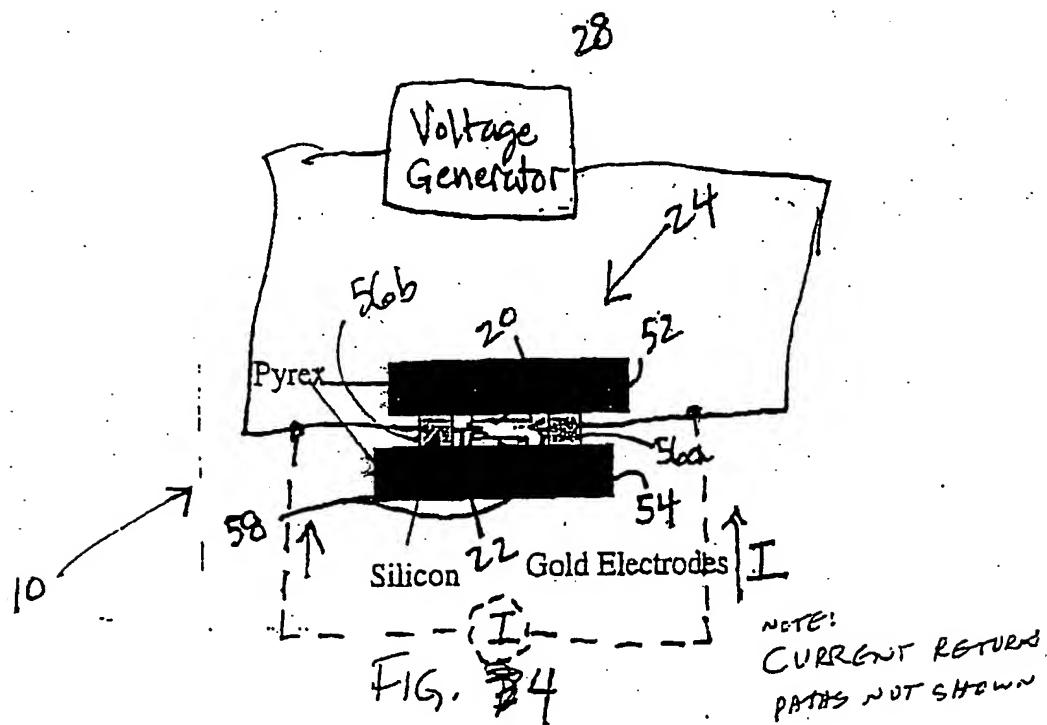 28
Voltage
Generator
24
56b
20
52
Pyrex
56a
58
54
22
10
Silicon
Gold Electrodes
I
I
NOTE:
CURRENT RETURN
PATHS NOT SHOWN
FIG. 4